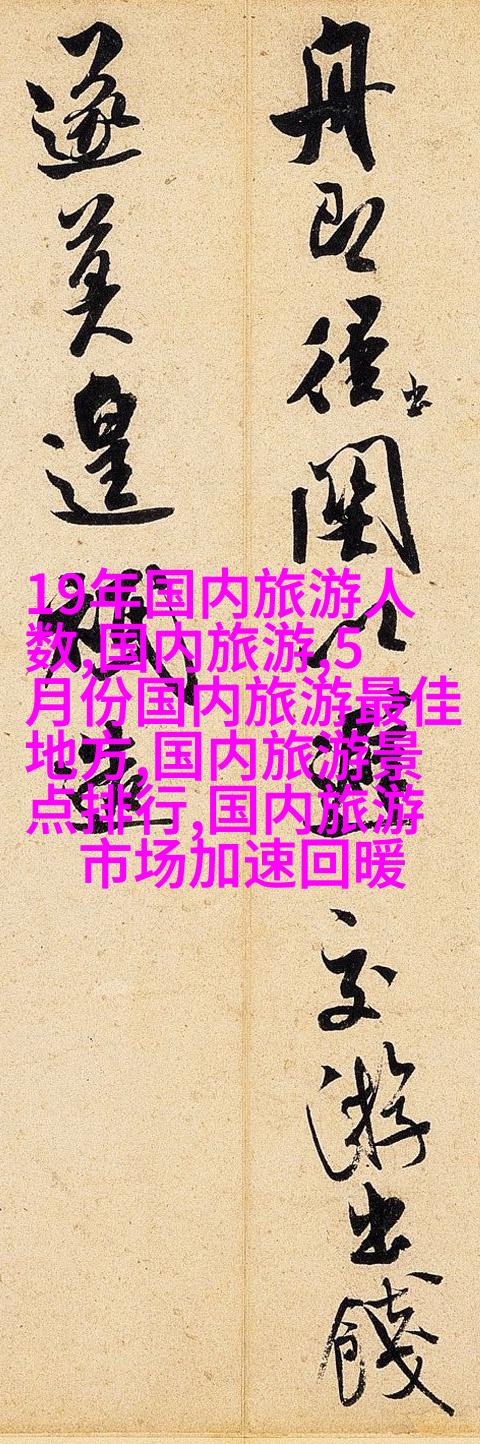 舟即徑出關以交游出餞
遂莫遑
19年国内旅游人
数,国内旅游,5
月份国内旅游最佳
地方,国内旅游景
点排行,国内旅游
市场加速回暖